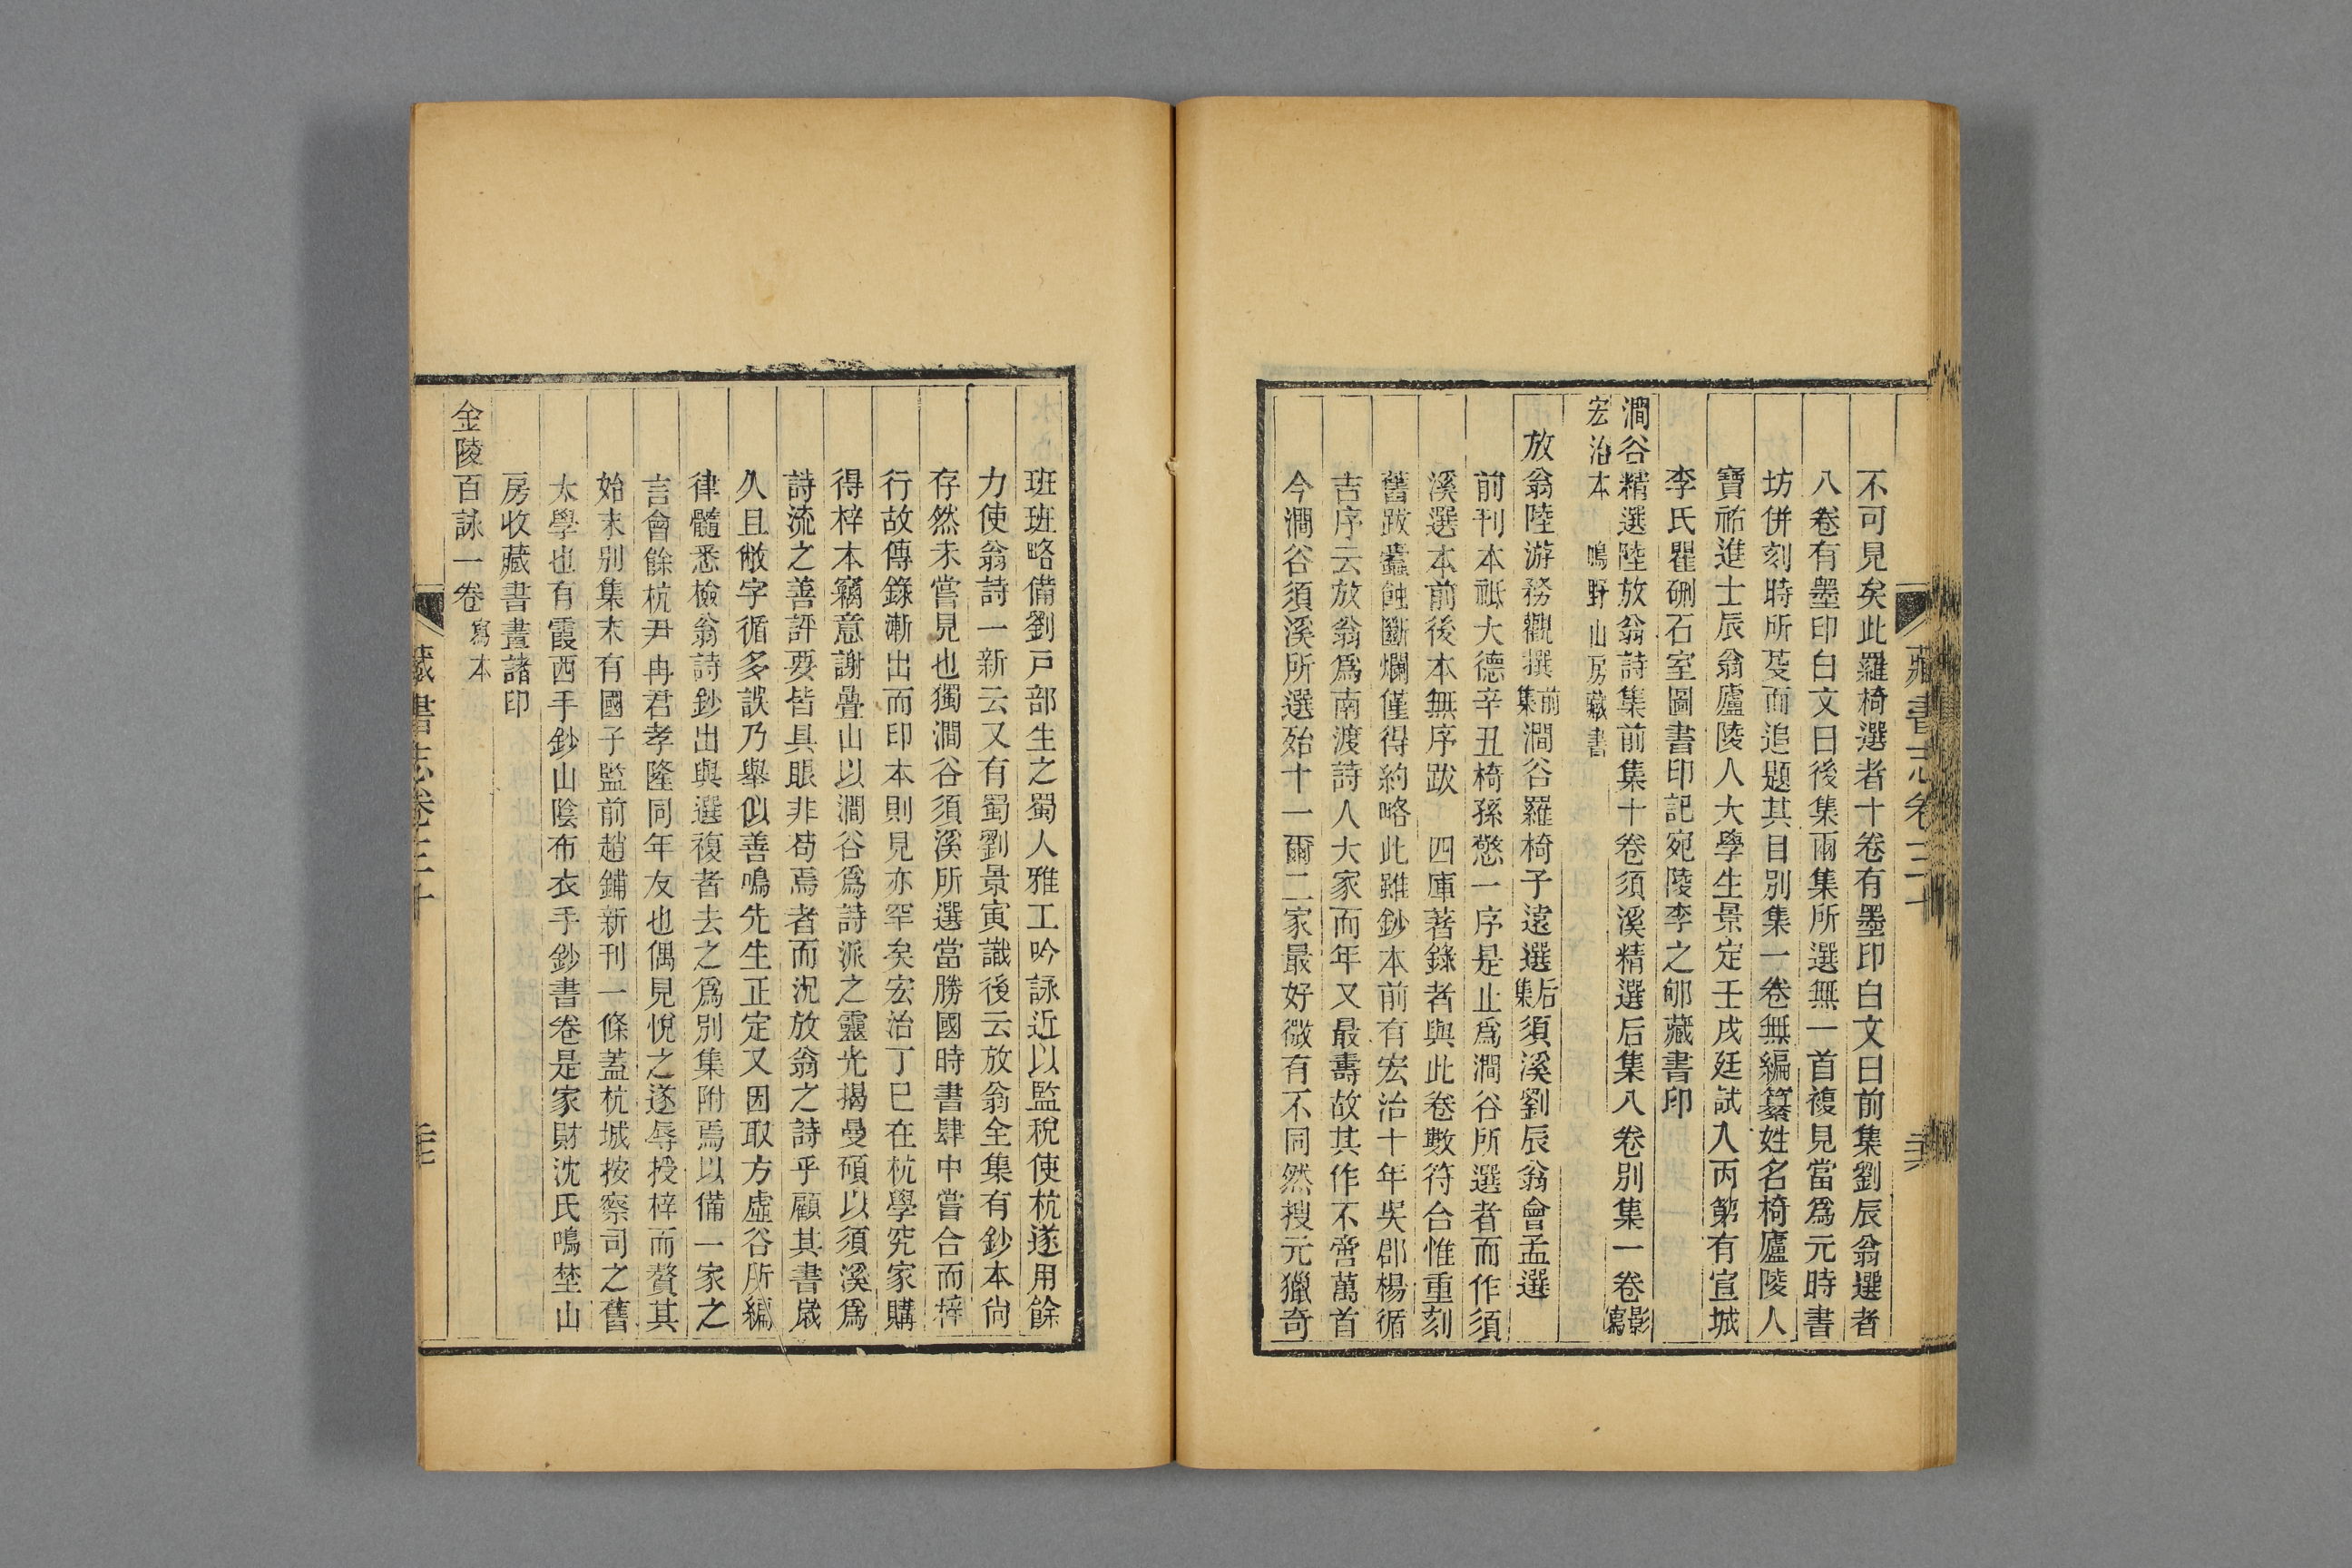 不可見矣此羅椅選者十卷有墨印白文曰前集劉辰翁選者
八卷有墨印白文曰後集兩集所選無一首複見當爲元時書
坊併刻時所芟而追題其目別集一卷無編纂姓名椅廬陵人
寶祐進士辰翁廬陵人大學生景定壬戌廷試入丙第有宣城
李氏瞿硎石室圖書印記宛陵李之郇藏書印
澗谷精選陸放翁詩集前集十卷須溪精選后集八卷別集一卷影寫
宏治本 鳴野山房藏書
放翁陸游務觀撰前集澗谷羅椅子遠選后集須溪劉辰翁會孟選
前刊本祗大德辛丑椅孫憼一序是止爲澗谷所選者而作須
溪選本前後本無序跋 四庫著錄者與此卷數符合惟重刻
舊跋蠹蝕斷爛僅得約略此雖鈔本前有宏治十年吳郡楊循
吉序云放翁爲南渡詩人大家而年又最壽故其作不啻萬首
今澗谷須溪所選殆十一爾二家最好微有不同然搜元獵奇
班班略備劉戸部生之蜀人雅工吟詠近以監稅使杭遂用餘
力使翁詩一新云又有蜀劉景寅識後云放翁全集有鈔本尙
存然未嘗見也獨澗谷須溪所選當勝國時書肆中嘗合而梓
行故傳錄漸出而印本則見亦罕矣宏治丁巳在杭學究家購
得梓本竊意謝疊山以澗谷爲詩派之靈光揭曼碩以須溪爲
詩流之善評要皆具眼非苟焉者而況放翁之詩乎顧其書歲
久且敝字循多誤乃舉似善鳴先生正定又因取方虛谷所編
律髓悉檢翁詩鈔出與選複者去之爲別集附焉以備一家之
言會餘杭尹冉君孝隆同年友也偶見悅之遂辱授梓而贅其
始末別集末有國子監前趙鋪新刊一條蓋杭城按察司之舊
太學也有霞西手鈔山陰布衣手鈔書卷是家財沈氏鳴埜山
房收藏書畫諸印
金陵百詠一卷寫本
藏書志卷三十